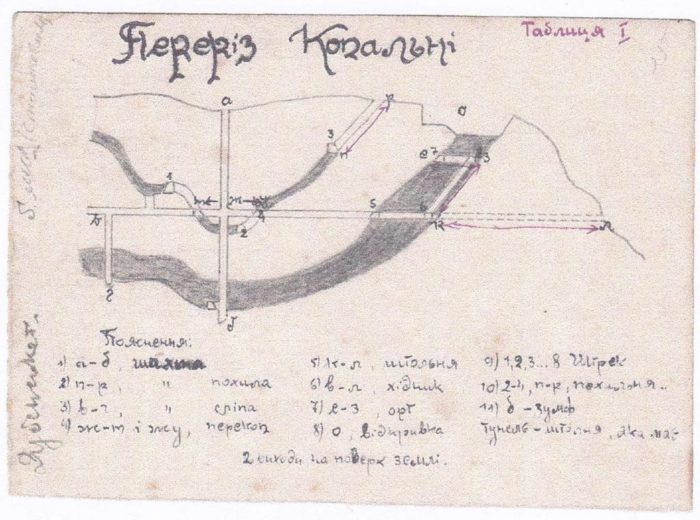 Переріз Копальні
Таблиця I
а
р
о
3
п
е 7 з
1
т ж
2
5 6
в
к л
г
б
Пояснення:
1) а-б, шахта
2) п-р, " похила
3) в-г, " сліпа
4) ж-т і жу, перекоп
5) к-л, штольня
6) в-л, хідник
7) е-з, орт
8) о, відкривка
9) 1,2,3...8 Штрек
10) 2-4, п-р, похильня..
11) б - зумф
Тунель-штольня, яка має
2 виходи на поверх землі.